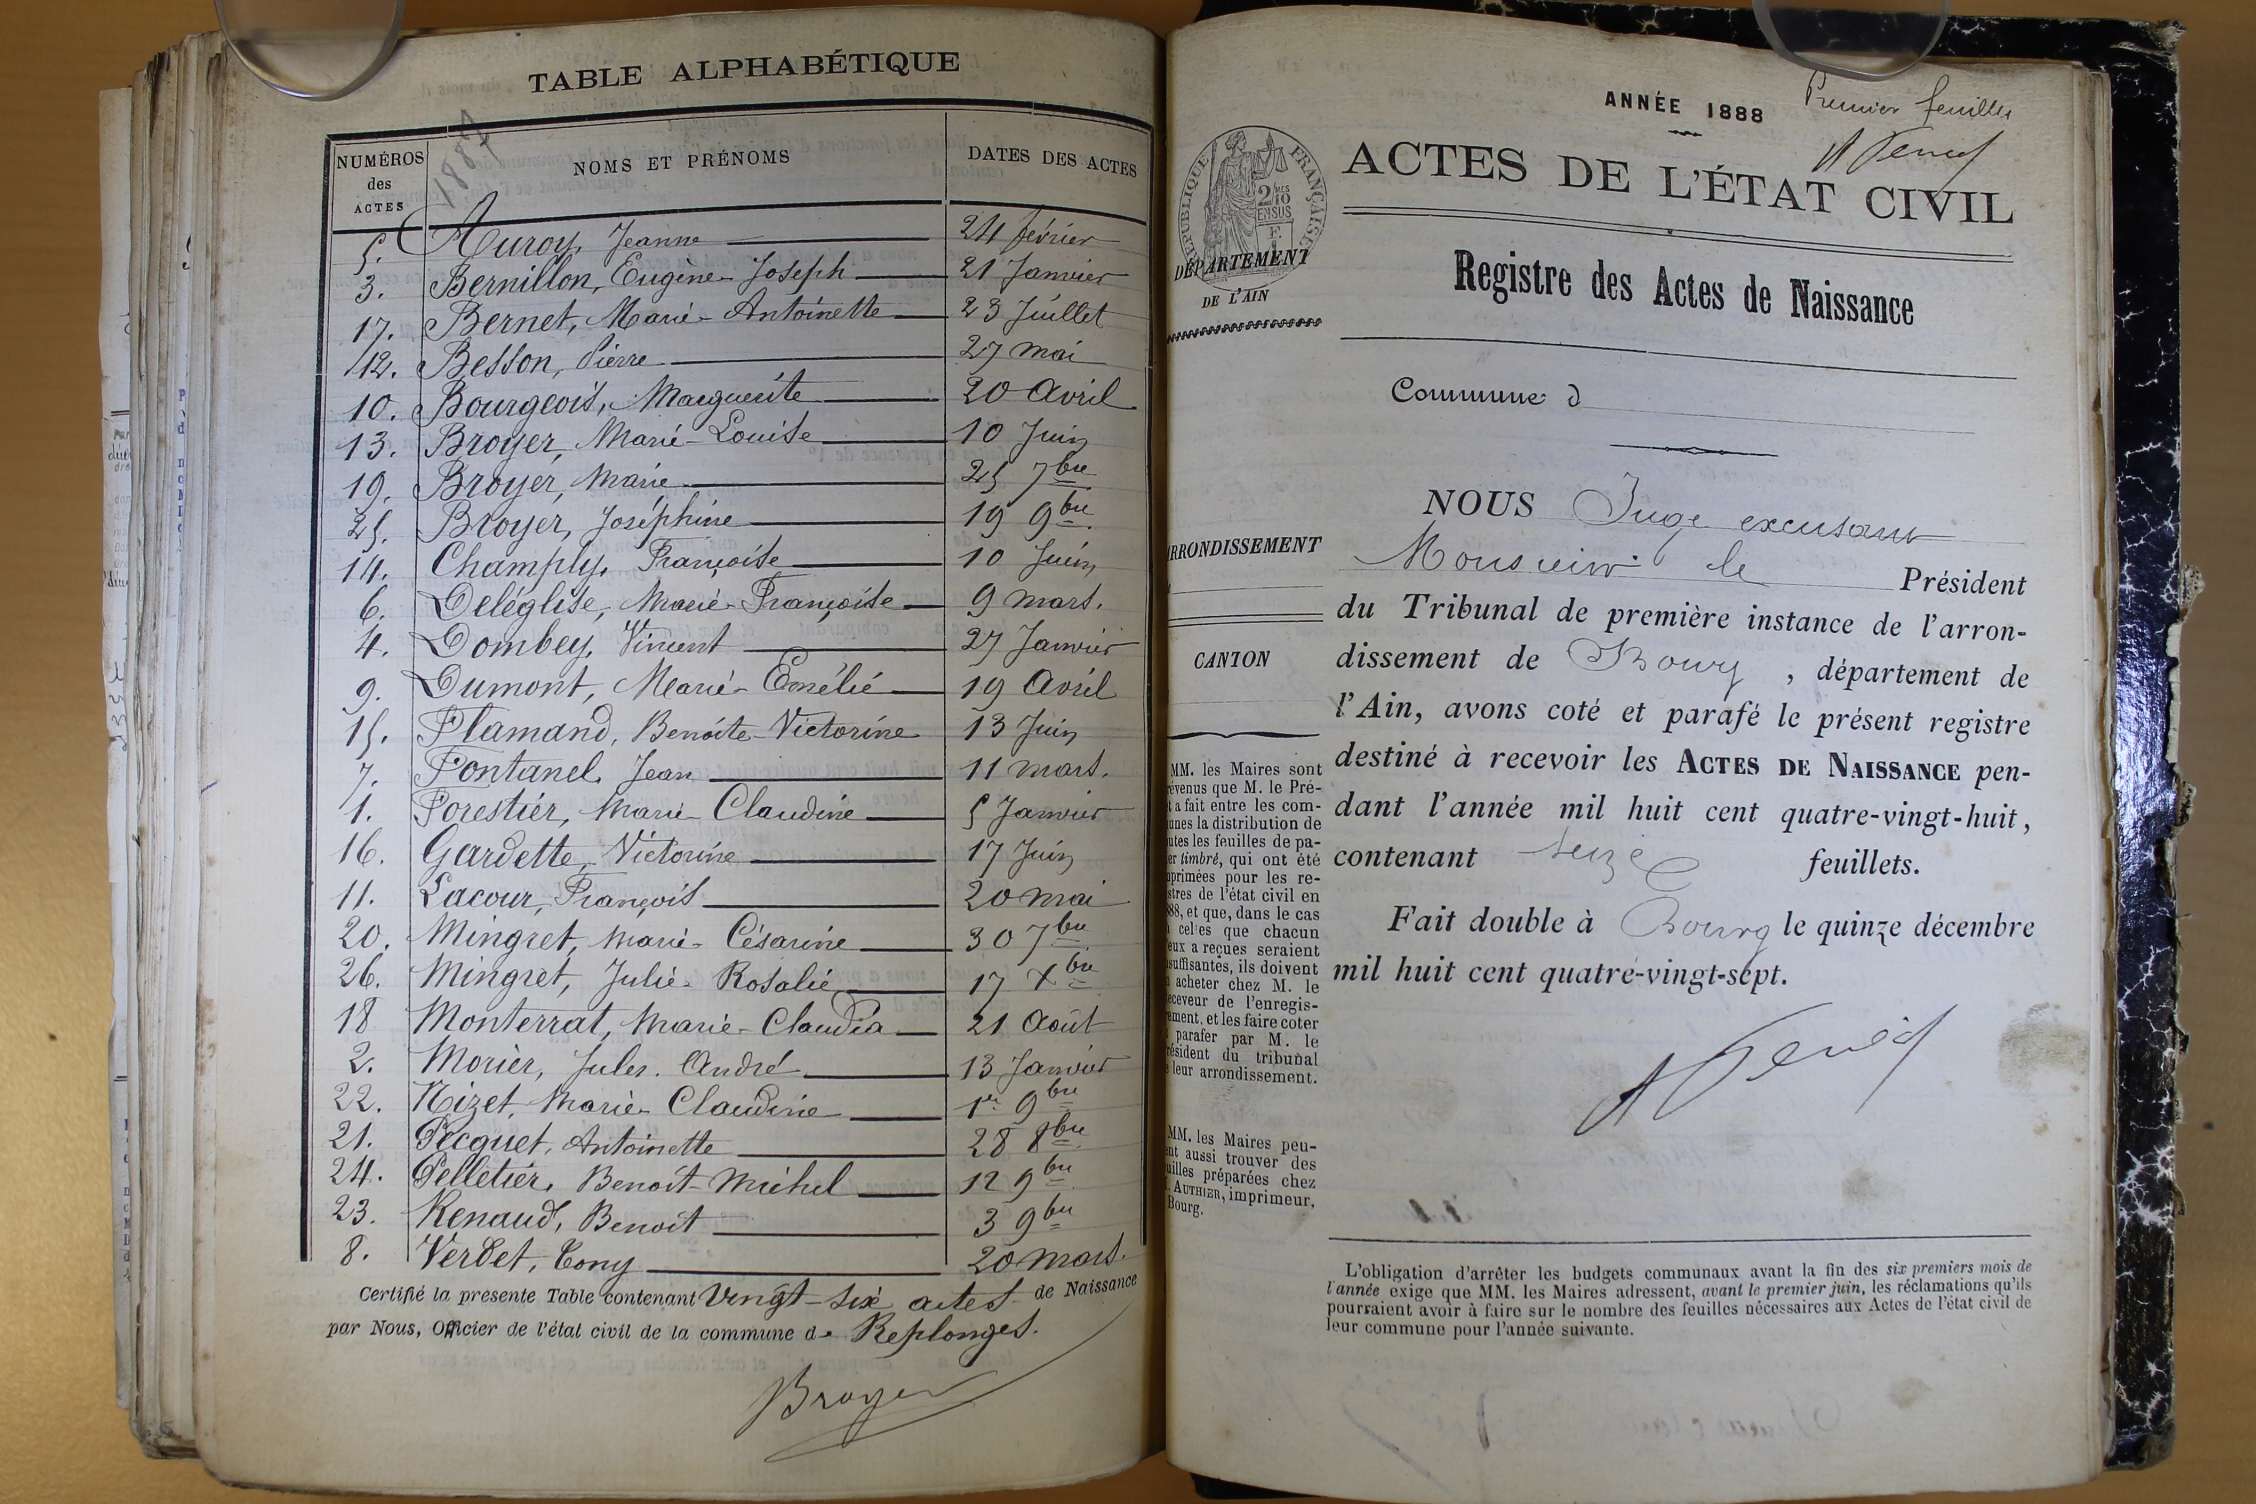 TABLE ALPHABÉTIQUE
1887
NUMÉROS des ACTES NOMS ET PRÉNOMS DATES DES ACTES
5. Auroy, Jeanne 24 février
3. Bernillon, Eugène-Joseph 21 Janvier
17. Bernet, Marie-Antoinette 23 Juillet
12. Besson, Pierre 27 mai
10. Bourgeois, Marguerite 20 Avril
13. Broyer, Marie-Louise 10 Juin
19. Broyer, Marie 25 7bre
25. Broyer, Joséphine 19 9bre
14. Champly, Françoise 10 Juin
6. Deléglise, Marie-Françoise 9 mars.
4. Dombey, Vincent 27 Janvier
9. Dumont, Marie-Emélie 19 Avril
15. Flamand, Benoite-Victorine 13 Juin
7. Fontanel, Jean 11 mars.
1. Forestier, Marie-Claudine 5 Janvier
16. Gardette, Victorine 17 Juin
11. Lacour, François 20 mai
20. Mingret, Marie-Césarine 30 7bre
26. Mingret, Julie-Rosalie 17 Xbre
18 Monterrat, Marie-Claudia 21 Août
2. Morier, Jules. André 13 Janvier
22. Nizet, Marie-Claudine 1er 9bre
21. Pecquet, Antoinette 28 8bre
24. Pelletier, Benoit-Michel 12 9bre
23. Renaud, Benoit 3 9bre
8. Verdet, Tony 20 mars.
Certifié la présente Table contenant Vingt-six actes de Naissance
par Nous, Officier de l'état civil de la commune de Replonges.
Broyer
ANNÉE 1888
Premier feuillet
RÉPUBLIQUE FRANÇAISE
2/10
EN SUS
ACTES DE L'ÉTAT CIVIL
DÉPARTEMENT
DE L'AIN
Registre des Actes de Naissance
Commune d
NOUS Juge excusant
Monsieur le Président
ARRONDISSEMENT
du Tribunal de première instance de l'arron-
dissement de Bourg, département de
CANTON
l'Ain, avons coté et parafé le présent registre
destiné à recevoir les ACTES DE NAISSANCE pen-
dant l'année mil huit cent quatre-vingt-huit,
contenant seize feuillets.
Fait double à Bourg le quinze décembre
mil huit cent quatre-vingt-sept.
MM. les Maires sont
évenus que M. le Pré-
t a fait entre les com-
unes la distribution de
utes les feuilles de pa-
er timbré, qui ont été
primées pour les re-
stres de l'état civil en
88, et que, dans le cas
celles que chacun
eux a reçues seraient
suffisantes, ils doivent
acheter chez M. le
eceveur de l'enregis-
ement, et les faire coter
parafer par M. le
résident du tribunal
leur arrondissement.
MM. les Maires peu-
ent aussi trouver des
uilles préparées chez
. AUTHIER, imprimeur,
Bourg.
L'obligation d'arrêter les budgets communaux avant la fin des six premiers mois de
l'année exige que MM. les Maires adressent, avant le premier juin, les réclamations qu'ils
pourraient avoir à faire sur le nombre des feuilles nécessaires aux Actes de l'état civil de
leur commune pour l'année suivante.